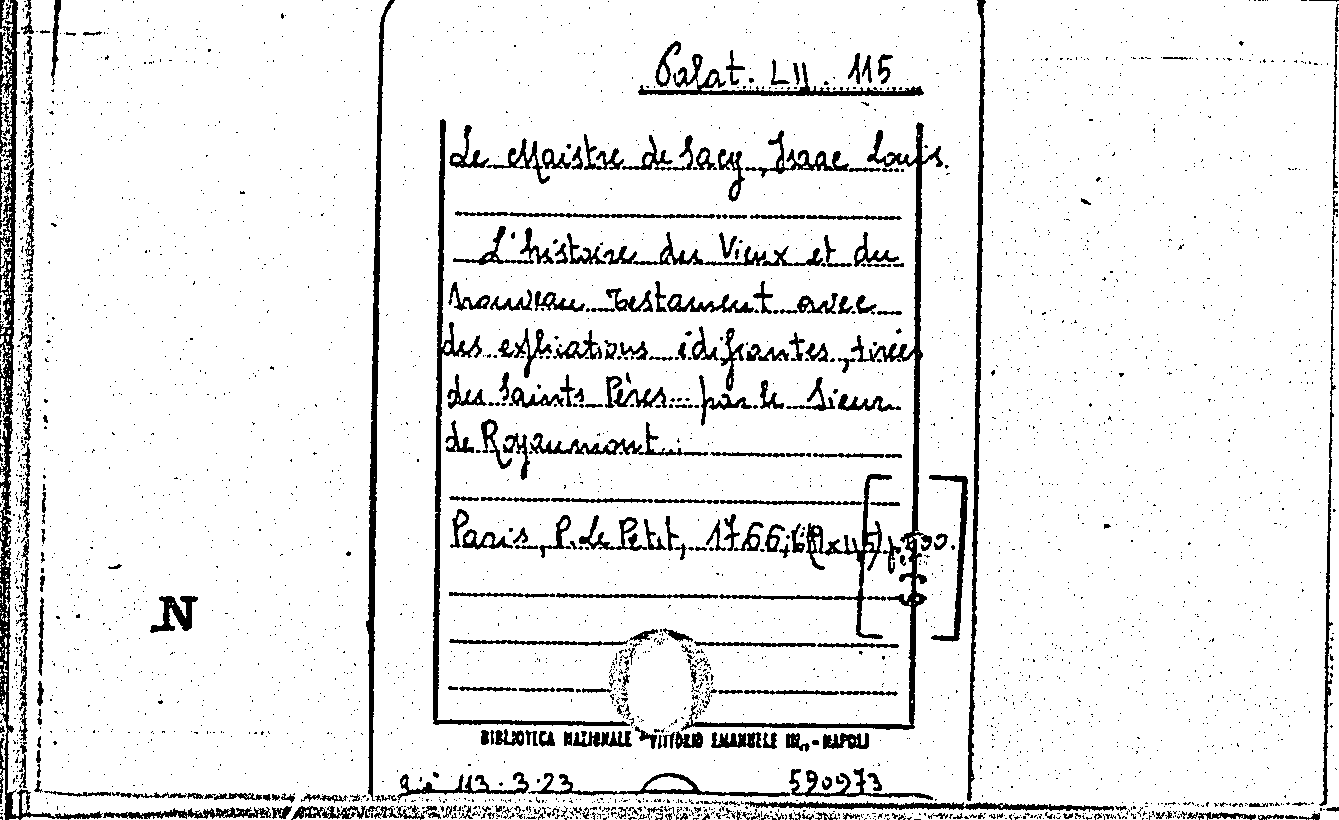 Palat. LII. 115
Le Maistre de Sacy, Isaac Louis.
L'histoire du Vieux et du
Nouveau Testament avec
des explications édifiantes, tirées
des Saints Pères... par le Sieur
de Royaumont...
Paris, P. Le Petit, 1766,
N
BIBLIOTECA NAZIONALE "VITTORIO EMANUELE III" - NAPOLI
113.3.23 590973